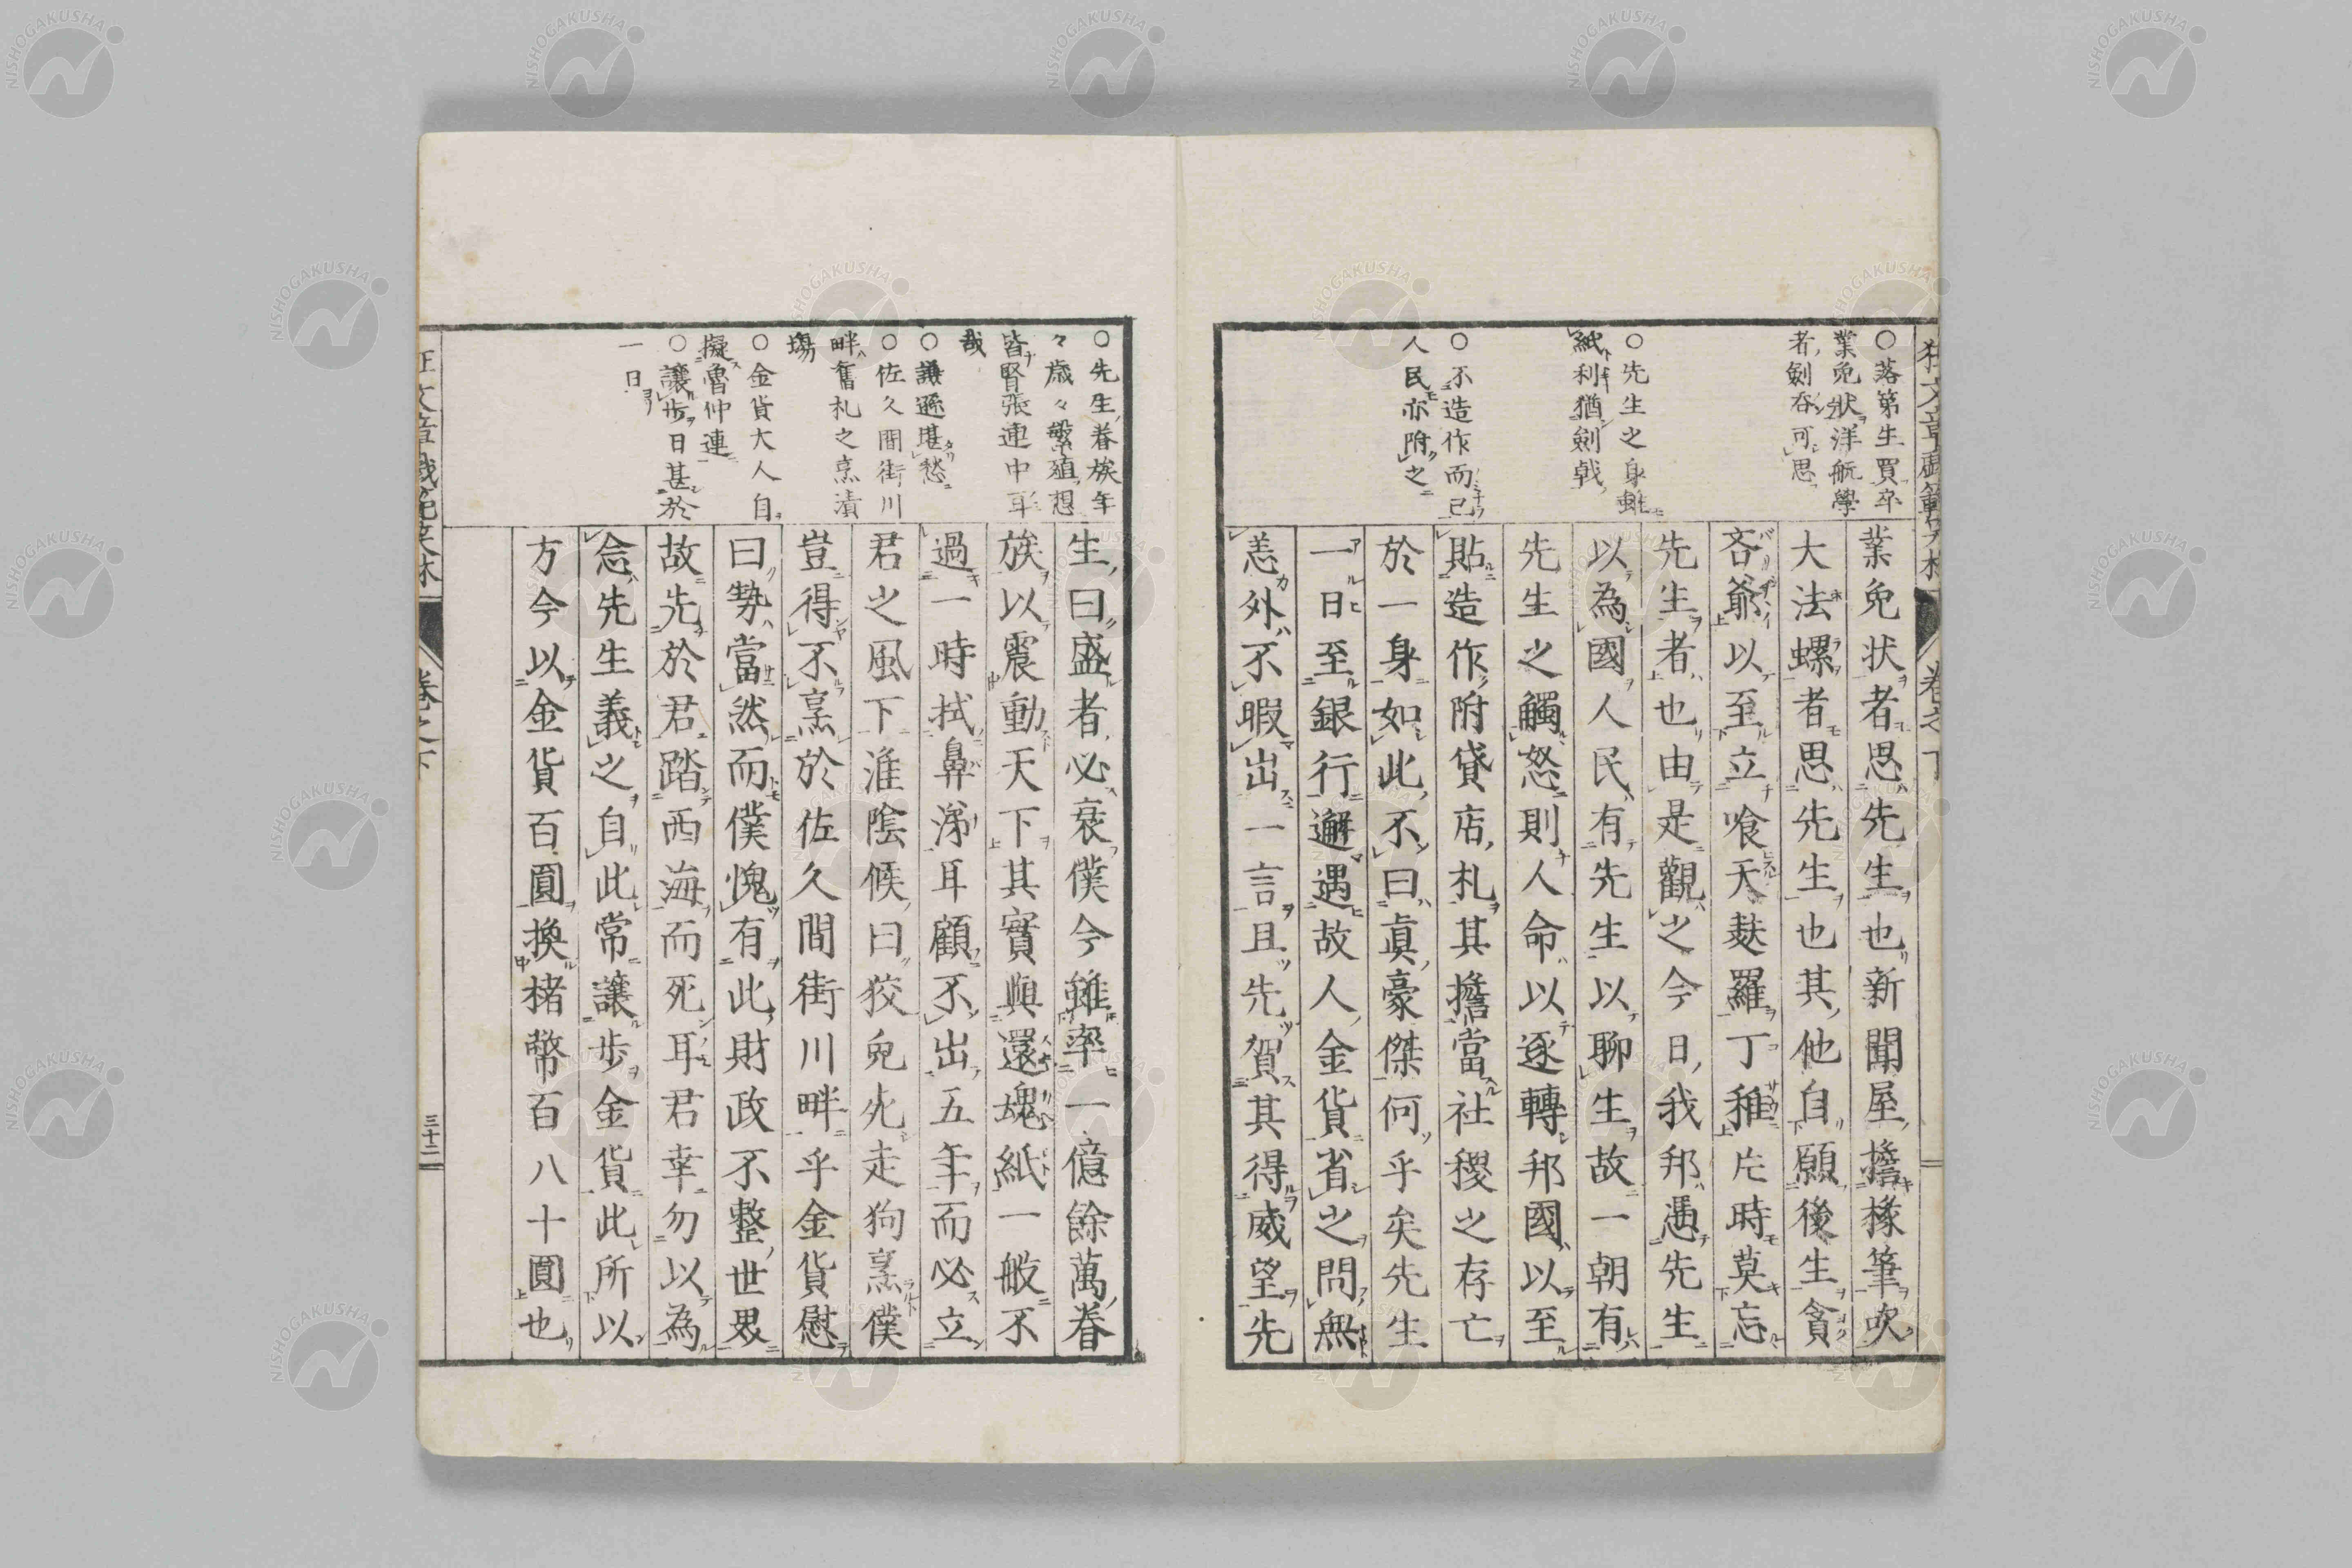 ○落第生買卒
業免狀洋航學
者劍呑可思
○先生之身雖
紙利猶劍戟
○不造作而已
人民亦附之
業免状者思先生也新聞屋擔椽筆吹
大法螺者思先生也其他自願後生貪
吝爺以至立喰天麩羅丁稚片時莫忘
先生者也由是觀之今日我邦憑先生
以為國人民有先生以聊生故一朝有
先生之觸怒則人命以逐轉邦國以至
貼造作附貸店札其擔當社稷之存亡
於一身如此不曰眞豪傑何乎矣先生
一日至銀行邂遇故人金貨省之問無
恙外不暇出一言且先賀其得威望先
卷之下
○先生眷族年
々歳々繁殖想
皆腎張連中耳
哉
○謙遜堪愁
○佐久間街川
畔舊札之烹漬
場
○金貨大人自
擬魯仲連
○讓歩日甚於
一日
生曰盛者必衰僕今雖率一億餘萬眷
族以震動天下其實與還魂紙一般不
過一時拭鼻涕耳顧不出五年而必立
君之風下淮陰候曰狡兎死走狗烹僕
豈得不烹於佐久間街川畔乎金貨慰
曰勢當然而僕愧有此財政不整世界
故先於君踏西海而死耳君幸勿以為
念先生義之自此常讓歩金貨此所以
方今以金貨百圓換楮幣百八十圓也
三十二
NISHOGAKUSHA